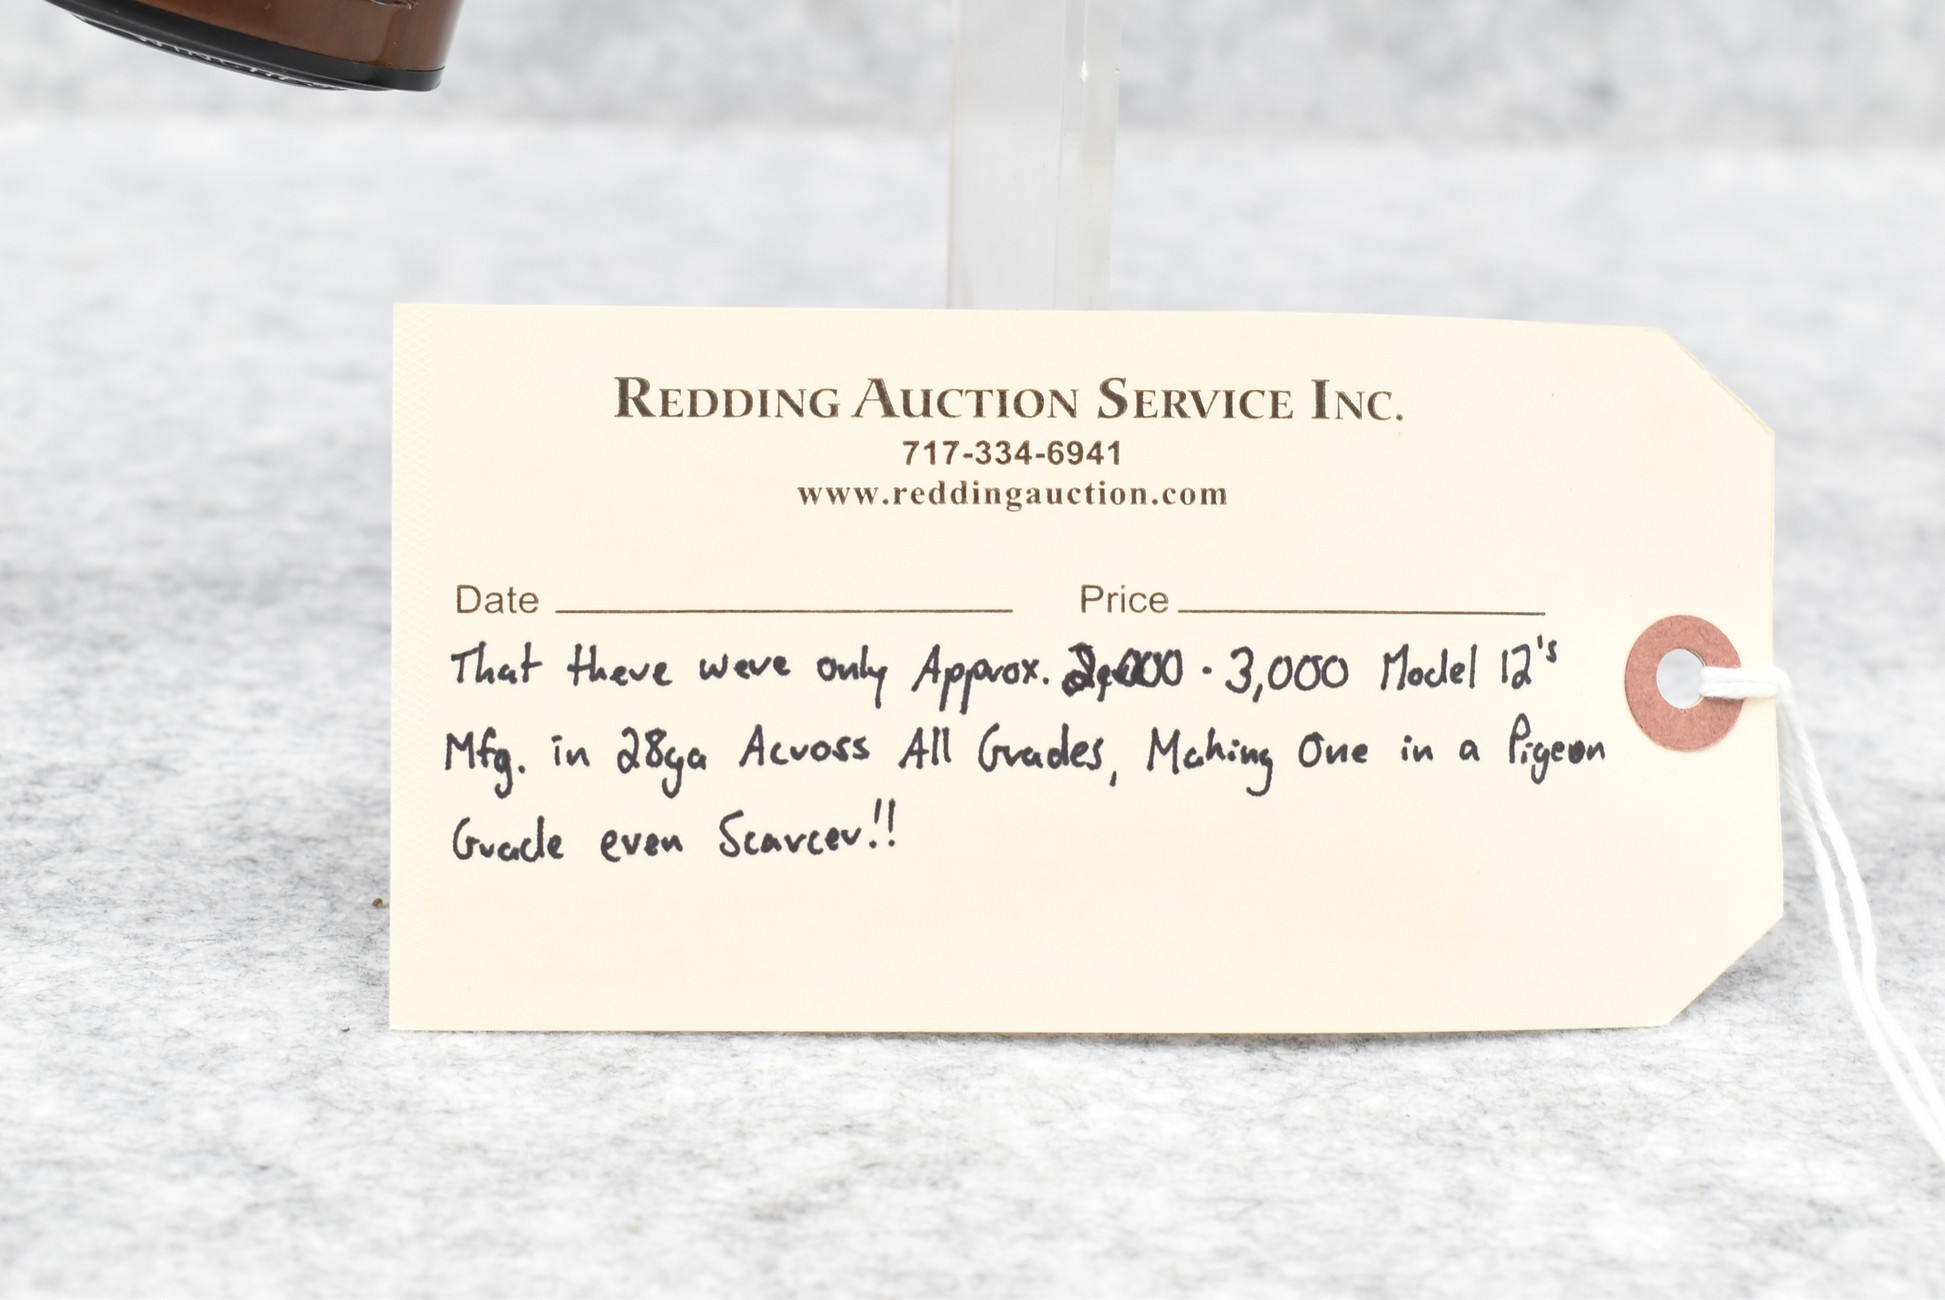 REDDING AUCTION SERVICE INC.
717-334-6941
www.reddingauction.com
Date Price
That there were only Approx. 2,000 - 3,000 Model 12's
Mfg. in 28ga Across All Grades, Making One in a Pigeon
Grade even Scarcer!!